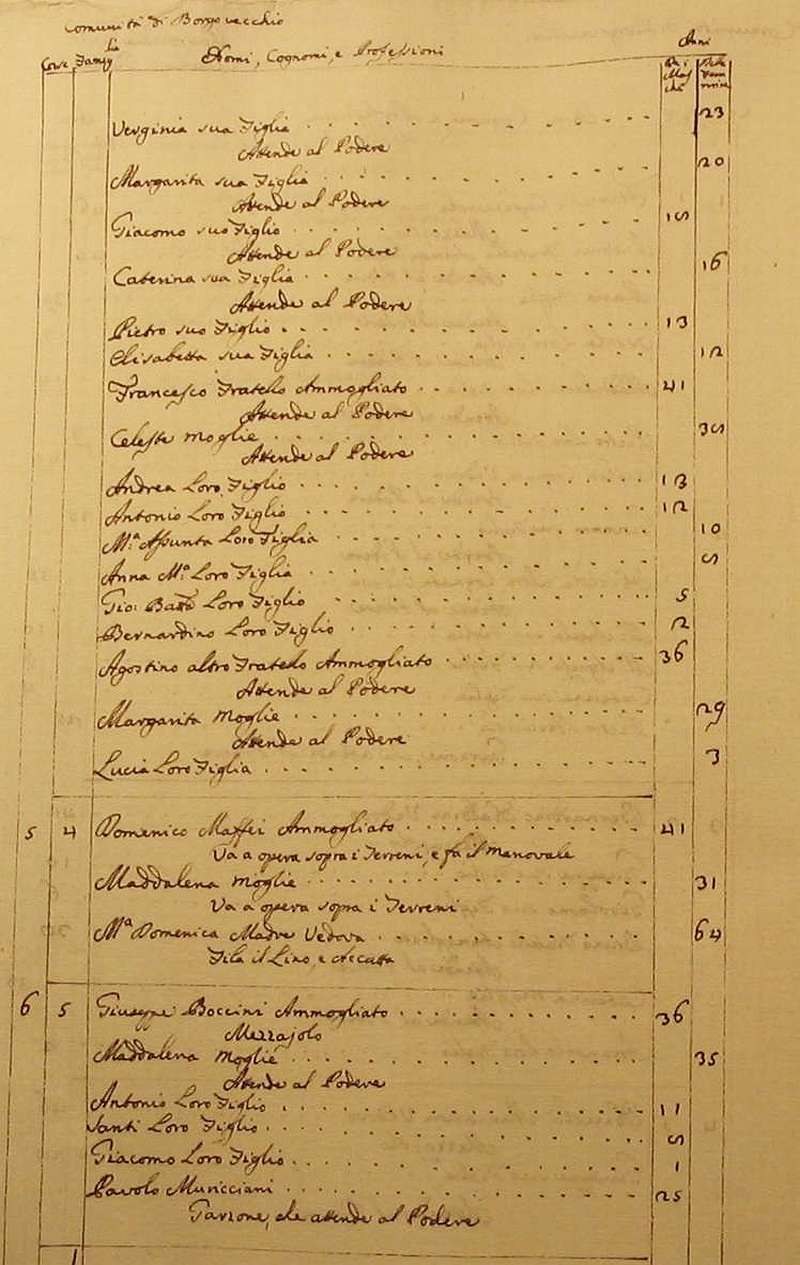 Comunità di Borgo vecchio
Case Famiglie Nomi, Cognomi, e Professioni Anni
De' Maschi Delle Femmine
Verginia sua Figlia 23
Attende al Podere
Margarita sua Figlia 20
Attende al Podere
Giacomo suo Figlio 19
Attende al Podere
Caterina sua Figlia 16
Attende al Podere
Pietro suo Figlio 13
Elisabetta sua Figlia 12
Francesco Fratello Ammogliato 41
Attende al Podere
Celeste Moglie 39
Attende al Podere
Andrea Loro Figlio 13
Antonio Loro Figlio 12
M.a Assunta Loro Figlia 10
Anna M.a Loro Figlia 9
Gio: Batta Loro Figlio 5
Bernardino Loro Figlio 2
Agostino altro Fratello Ammogliato 36
Attende al Podere
Margarita Moglie 29
Attende al Podere
Lucia Loro Figlia 3
5 4 Domenico Maffei Ammogliato 41
Va a opera sopra i Terreni, e fà il Manovale
Maddalena Moglie 31
Va a opera sopra i Terreni
M.a Domenica Madre Vedova 64
Fila il Lino, e
6 5 Giuseppe Boccini Ammogliato 36
Mezzajolo
Maddalena Moglie 35
Attende al Podere
Antonio Loro Figlio 11
Santi Loro Figlio 9
Giacomo Loro Figlio 1
Pavolo Muricciani 25
Garzone, che attende al Podere